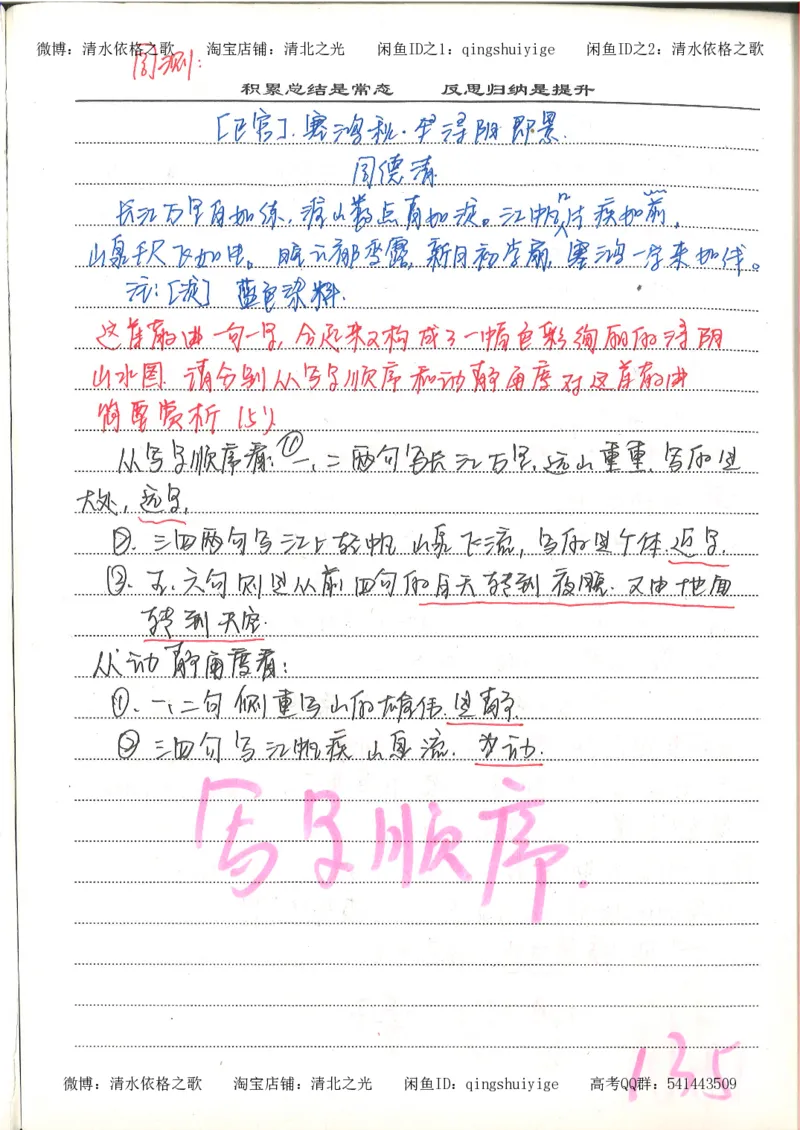 微博：清水依格之歌 淘宝店铺：清北之光 闲鱼ID之1：qingshuiyige 闲鱼ID之2：清水依格之歌
周测：
积累总结是常态 反思归纳是提升
[正宫]．塞鸿秋·浔阳即景．
周德清
长江万里白如练，淮山数点青如淀。江帆几片疾如箭，
山泉千尺飞如电。晚云都变露，新月初学扇，塞鸿一字来如线。
注：[淀] 蓝色染料．
这首散曲一句一景，合起来又构成了一幅色彩绚丽的浔阳
山水图．请分别从写景顺序和动静角度对这首散曲
简要赏析（5）
从写景顺序看：①一、二两句写长江万里，远山重重．写的是
大处，远景，
②．三四两句写江上轻帆 山泉飞流，写的是个体．近景．
③．五、六句则是从前四句的白天转到夜晚．又由地面
转到天空．
从动静角度看：
①．一、二句侧重写山的雄伟．是静．
② 三四句写江帆疾 山泉流．为动．
写景顺序．
135
微博：清水依格之歌 淘宝店铺：清北之光 闲鱼ID：qingshuiyige 高考QQ群：541443509